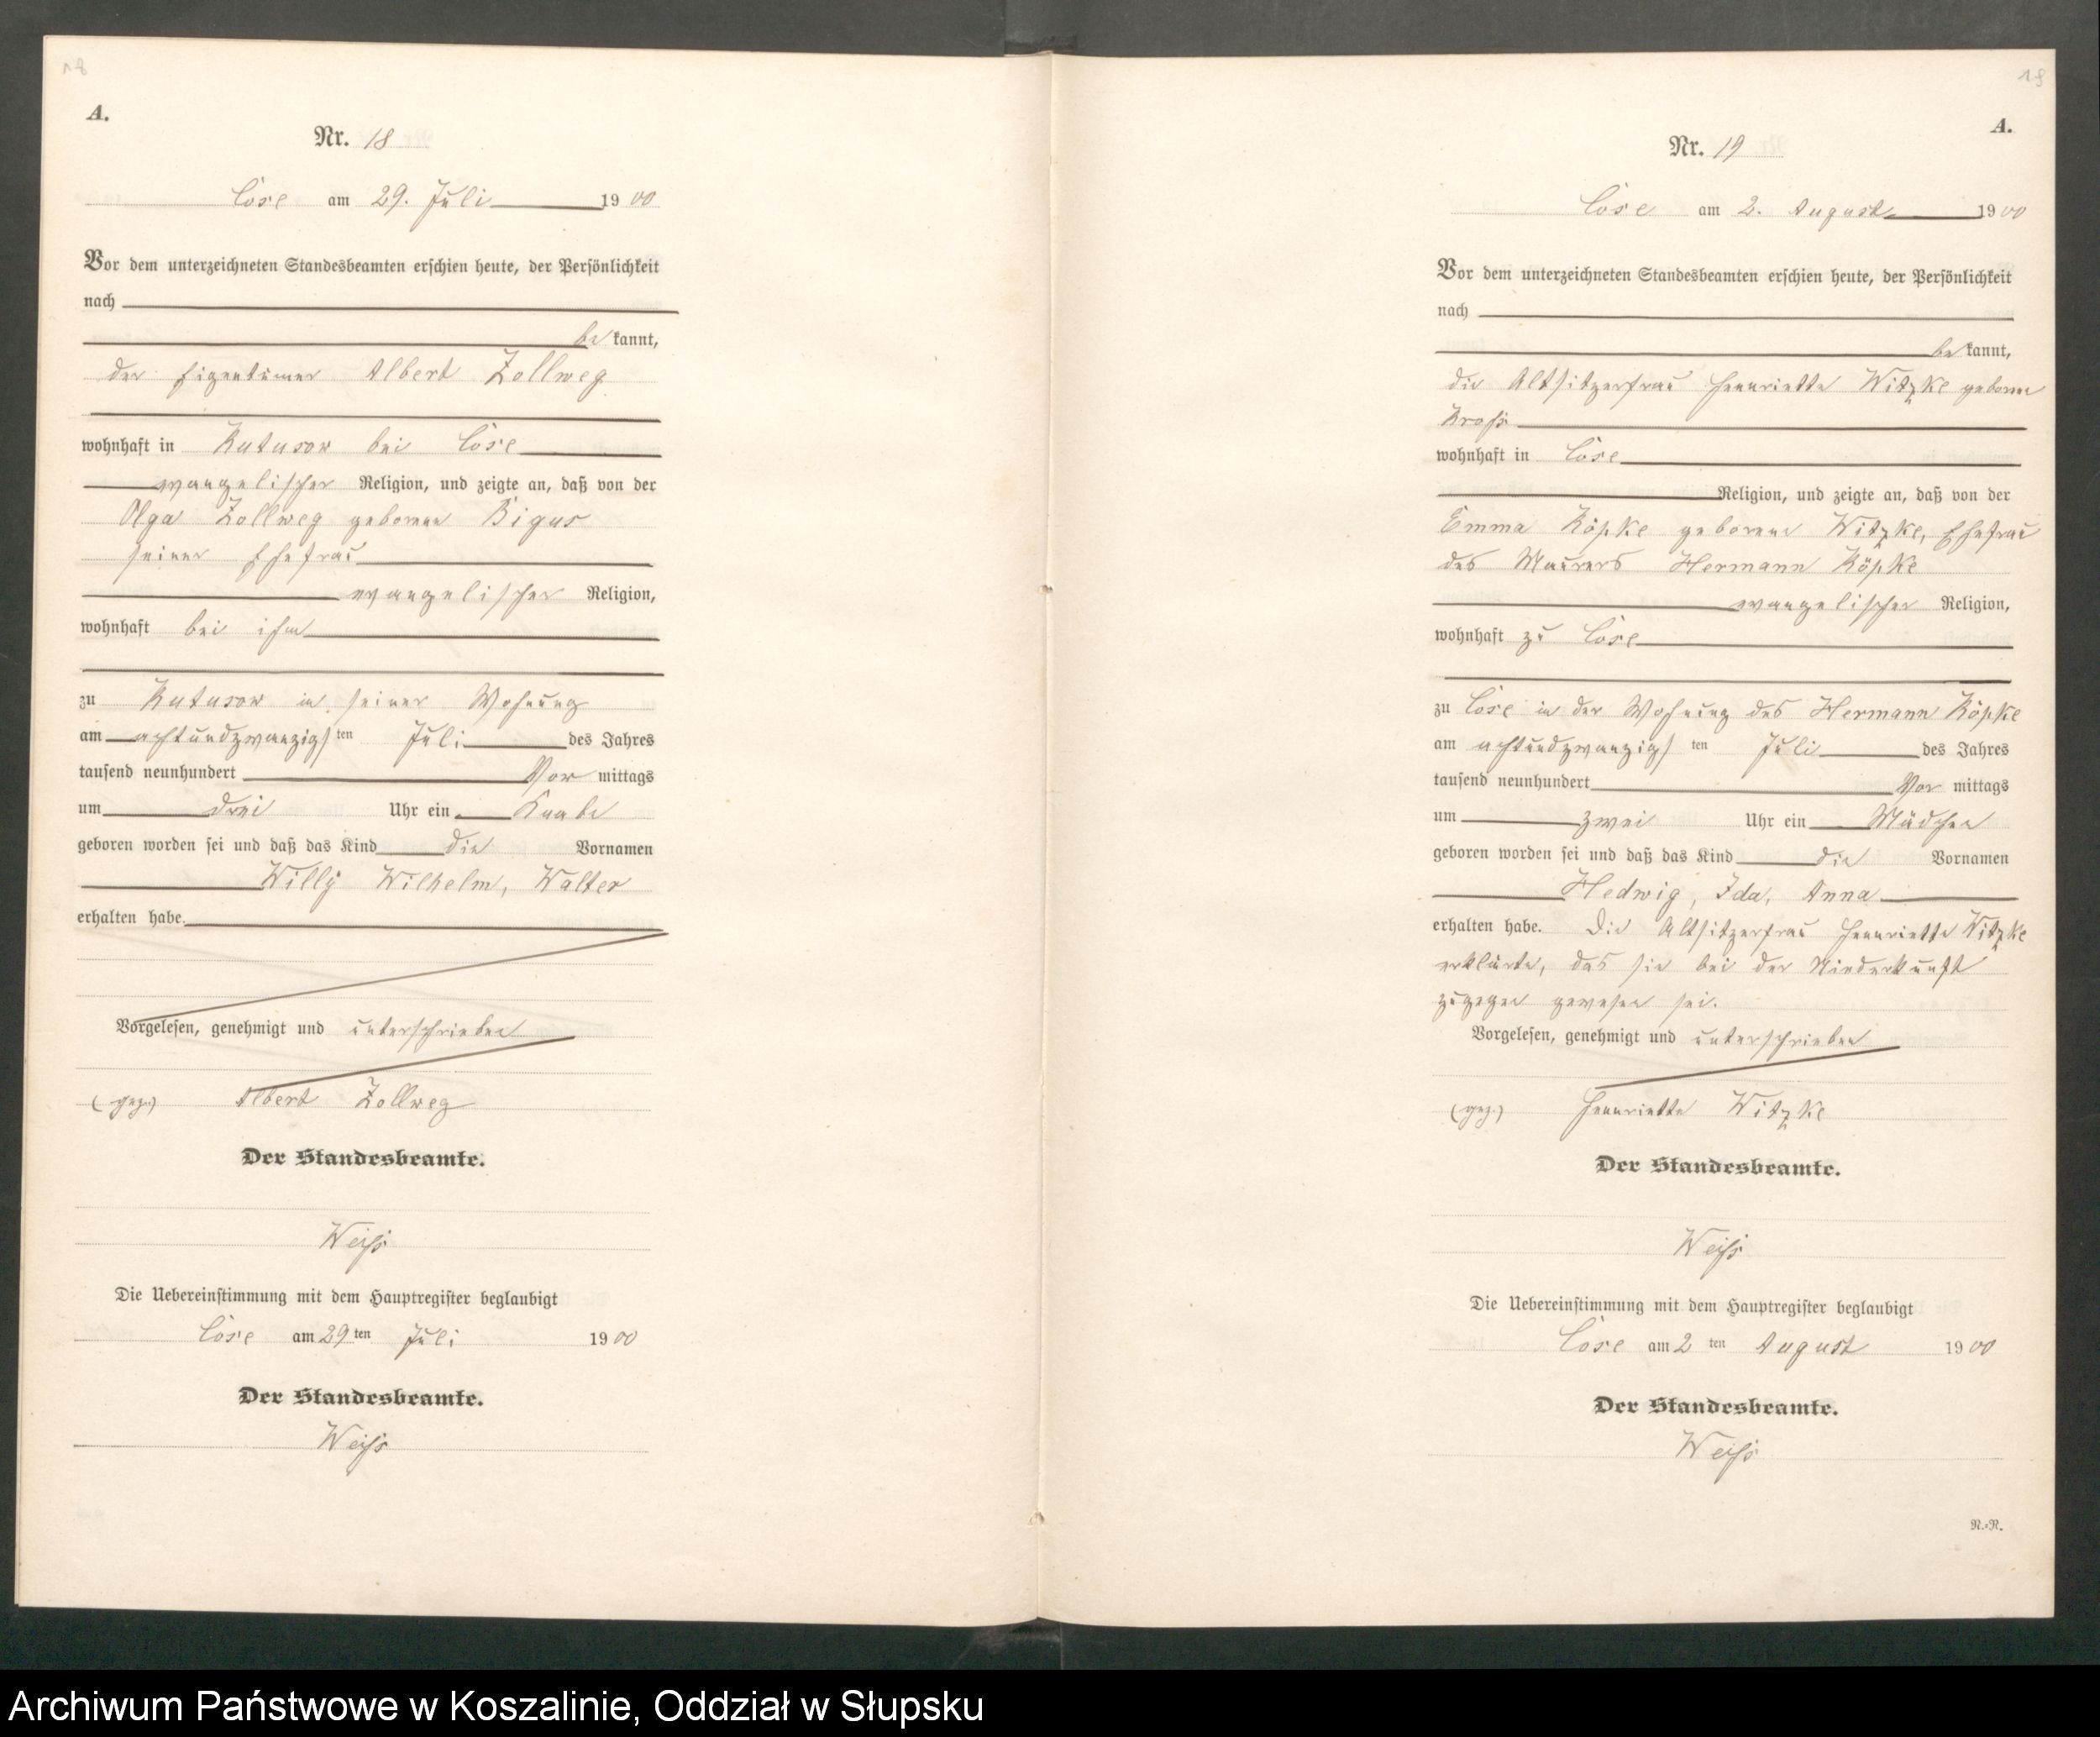 18
A.
Nr. 18
Löse am 29. Juli 1900
Vor dem unterzeichneten Standesbeamten erschien heute, der Persönlichkeit
nach
be kannt,
der Eigentümer Albert Zollweg
wohnhaft in Kutusow bei Löse
evangelischer Religion, und zeigte an, daß von der
Olga Zollweg geborene Bigus
seiner Ehefrau
evangelischer Religion,
wohnhaft bei ihm
zu Kutusow in seiner Wohnung
am achtundzwanzigsten Juli des Jahres
tausend neunhundert Vor mittags
um drei Uhr ein Knabe
geboren worden sei und daß das Kind die Vornamen
Willy Wilhelm, Walter
erhalten habe.
Vorgelesen, genehmigt und unterschrieben
(gez.) Albert Zollweg
Der Standesbeamte.
Weiß
Die Uebereinstimmung mit dem Hauptregister beglaubigt
Löse am 29 ten Juli 1900
Der Standesbeamte.
Weiß
19
A.
Nr. 19
Löse am 2. August 1900
Vor dem unterzeichneten Standesbeamten erschien heute, der Persönlichkeit
nach
be kannt,
die Altsitzerfrau Henriette Witzke geborene
Kroß
wohnhaft in Löse
Religion, und zeigte an, daß von der
Emma Köpke geborene Witzke, Ehefrau
des Maurers Hermann Köpke
evangelischer Religion,
wohnhaft zu Löse
zu Löse in der Wohnung des Hermann Köpke
am achtundzwanzigsten Juli des Jahres
tausend neunhundert Vor mittags
um zwei Uhr ein Mädchen
geboren worden sei und daß das Kind die Vornamen
Hedwig, Ida, Anna
erhalten habe. Die Altsitzerfrau Henriette Witzke
erklärte, das sie bei der Niederkunft
zugegen gewesen sei.
Vorgelesen, genehmigt und unterschrieben
(gez.) Henriette Witzke
Der Standesbeamte.
Weiß
Die Uebereinstimmung mit dem Hauptregister beglaubigt
Löse am 2 ten August 1900
Der Standesbeamte.
Weiß
N.-R.
Archiwum Państwowe w Koszalinie, Oddział w Słupsku